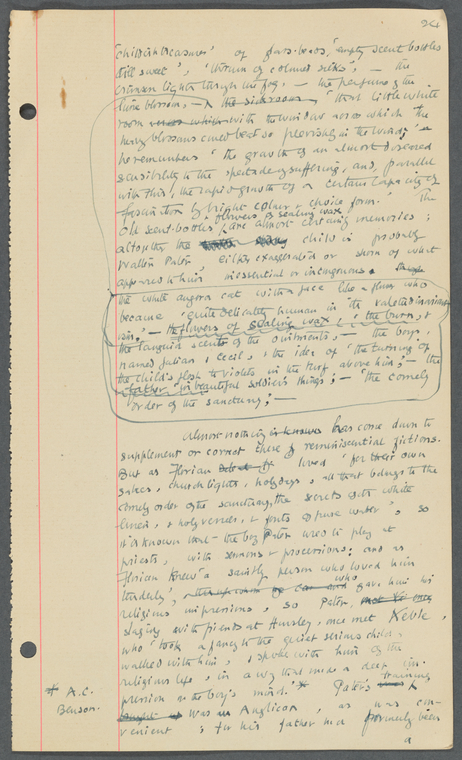 94
'childish treasures' of glass-beads, 'empty scent bottles
still sweet', 'thrum of coloured silks', — the
crimson lights through the fog, — the perfume of the
lime blossom, — the sick room, 'that little white
room with the window across which the
heavy blossoms could beat so peevishly in the wind;' —
he remembers 'the growth of an almost diseased
sensibility to the spectacle of suffering, and, parallel
with this, the rapid growth of a certain capacity of
fascination by bright colour & choice form.' The
old scent-bottles, & flowers of sealing wax, are almost certainly memories;
altogether the child is probably
Walter Pater either exaggerated or shorn of what
appeared to him inessential or incongruous.
the white angora cat with a face like a flower who
became 'quite delicately human in its valetudinarian
ism;' — the flowers of sealing wax, 'the burn, &
the languid scents of the ointments, — the boys,
named Julian & Cecil, & the idea of 'the turning of
the child's flesh to violets in the turf above him; — the
father 'in beautiful soldier's things; — 'the comely
order of the sanctuary; —
Almost nothing has come down to
supplement or correct these reminiscential fictions.
But as Florian loved 'for their own
sakes, church lights, holy days, all that belongs to the
comely order of the sanctuary, the secrets of its white
linen, & holy vessels, & fonts of pure water', so
it is known that the boy Pater used to play at
priests, with sermons & processions: and as
Florian knew 'a saintly person who loved him
tenderly', who gave him his
religious impressions, so Pater,
staying with friends at Hursley, once met Keble,
who 'took a fancy to the quiet serious child,
walked with him, & spoke with him of the
religious life, in a way that made a deep im-
pression on the boy's mind.'* Pater's training
was Anglican, as was con-
venient; for his father had formerly been
a
* A.C.
Benson.